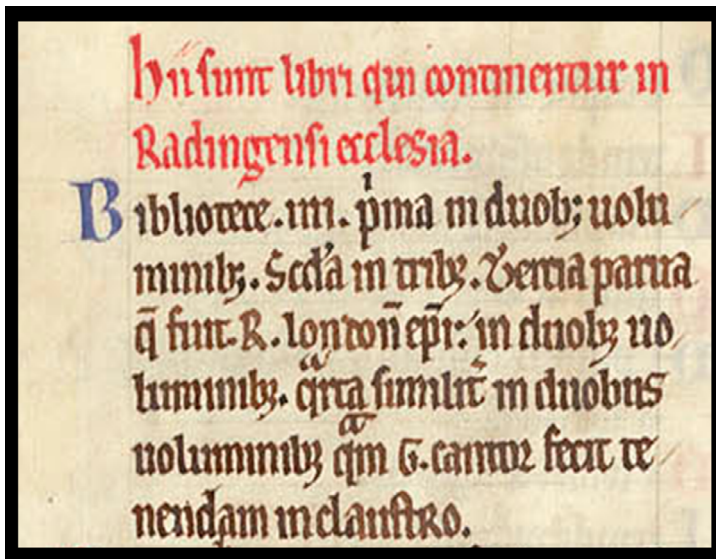 Hii sunt libri qui continentur in
Radingensi ecclesia.
Bibliotece .iiii. p̍ma in duob; uolu/
minib;. Scd̓a in trib;. Tercia parua
q̄ fuit .R. londoñ ep̄i: in duob; uo/
luminib;. qͣrta similit̓ in duobus
uoluminib; qͣm G. cantor fecit te/
nendam in claustro.